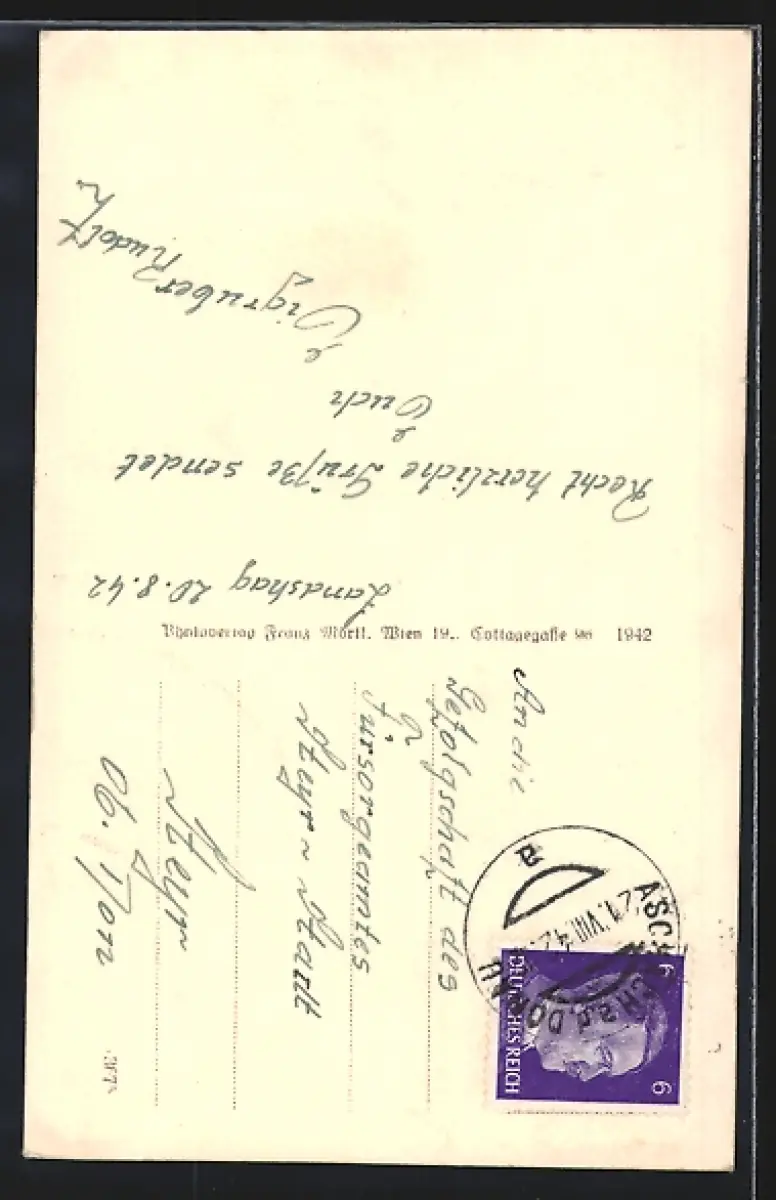 Landshag 20.8.42
Recht herzliche Grüße sendet
Euch
Eigruber
Rudolf
Photoverlag Franz Mörtl, Wien 19., Cottagegasse 1942
An die
Gefolgschaft des
Fürsorgeamtes
Steyr-Stadt
Steyr
Ob. Don
ASCHACH a.d. DONAU
21.VIII.42
a
6
6
DEUTSCHES REICH